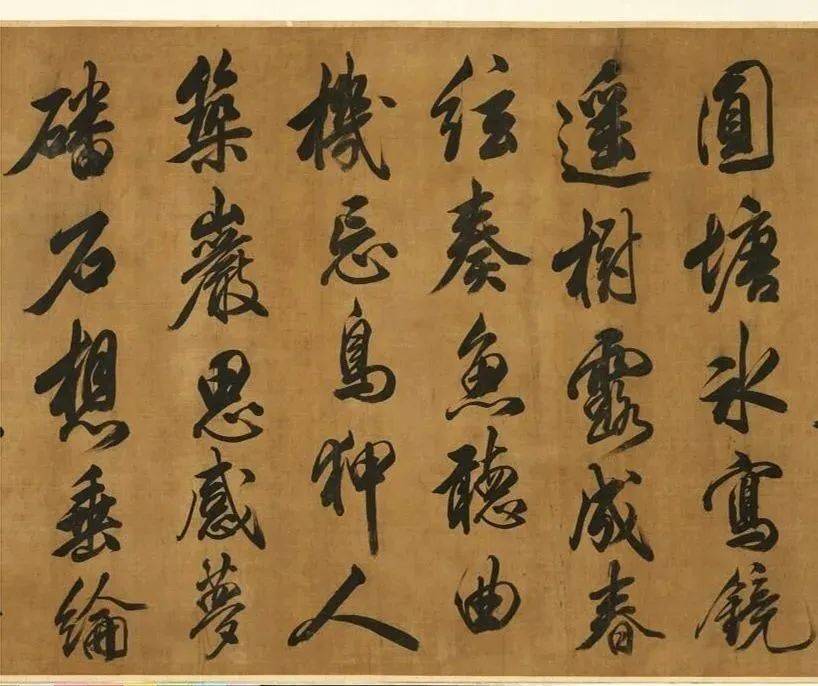 圓塘冰寫鏡
遥樹露成春
弦奏魚聽曲
機忘鳥狎人
築巖思感夢
磻石想垂綸